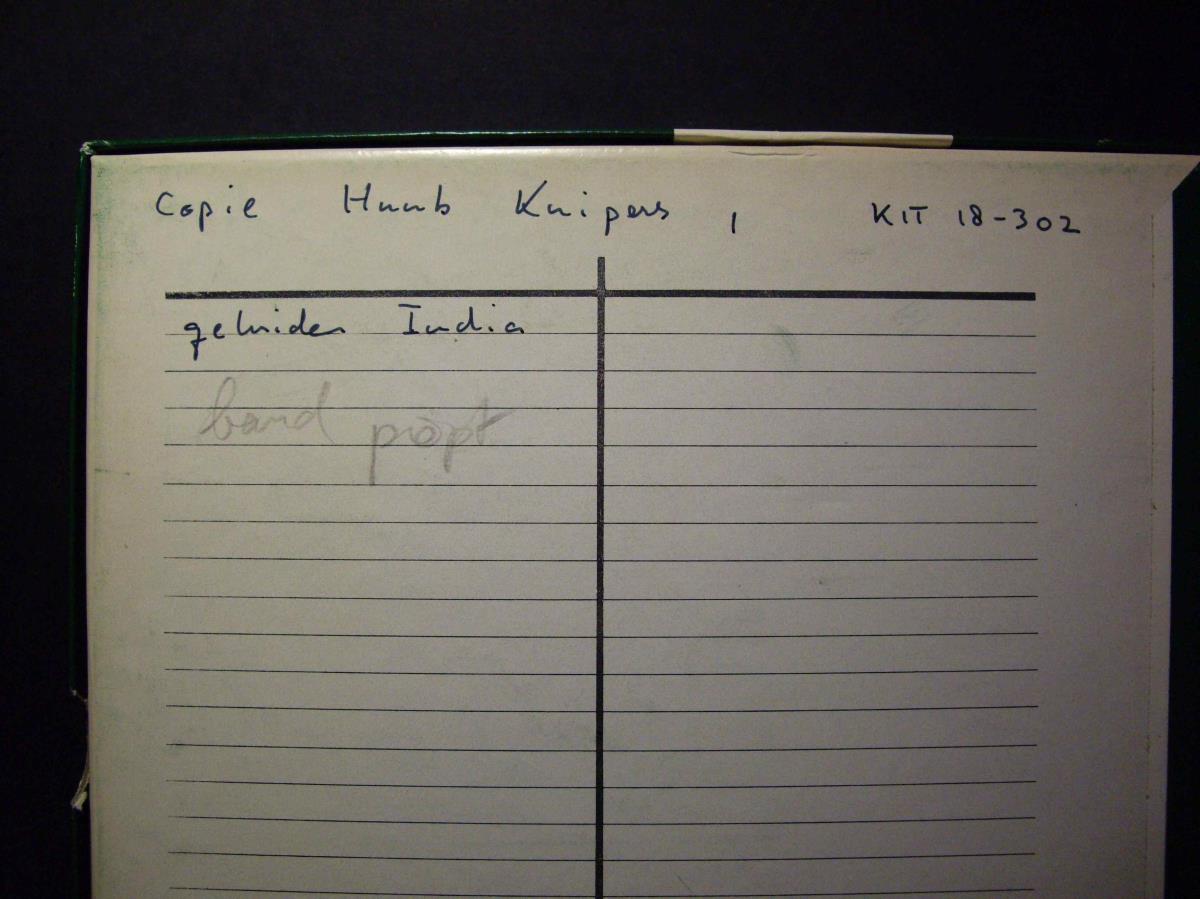 Copie Huub Kuipers, KIT 18-302
geluiden India
band piept